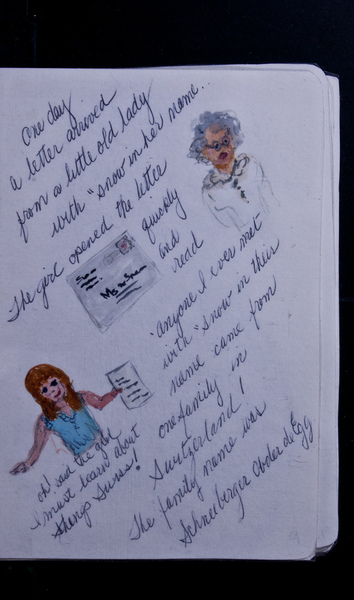 one day
a letter arrived
from a little old lady
with "snow in her name...
The girl opened the letter
quickly
and
read
Ms.
"anyone I ever met
with "snow in their
name came from
one family in
Switzerland!
The family name was
Schneeberger oder de Egg
oh! said the girl
I must learn about
Swiss!